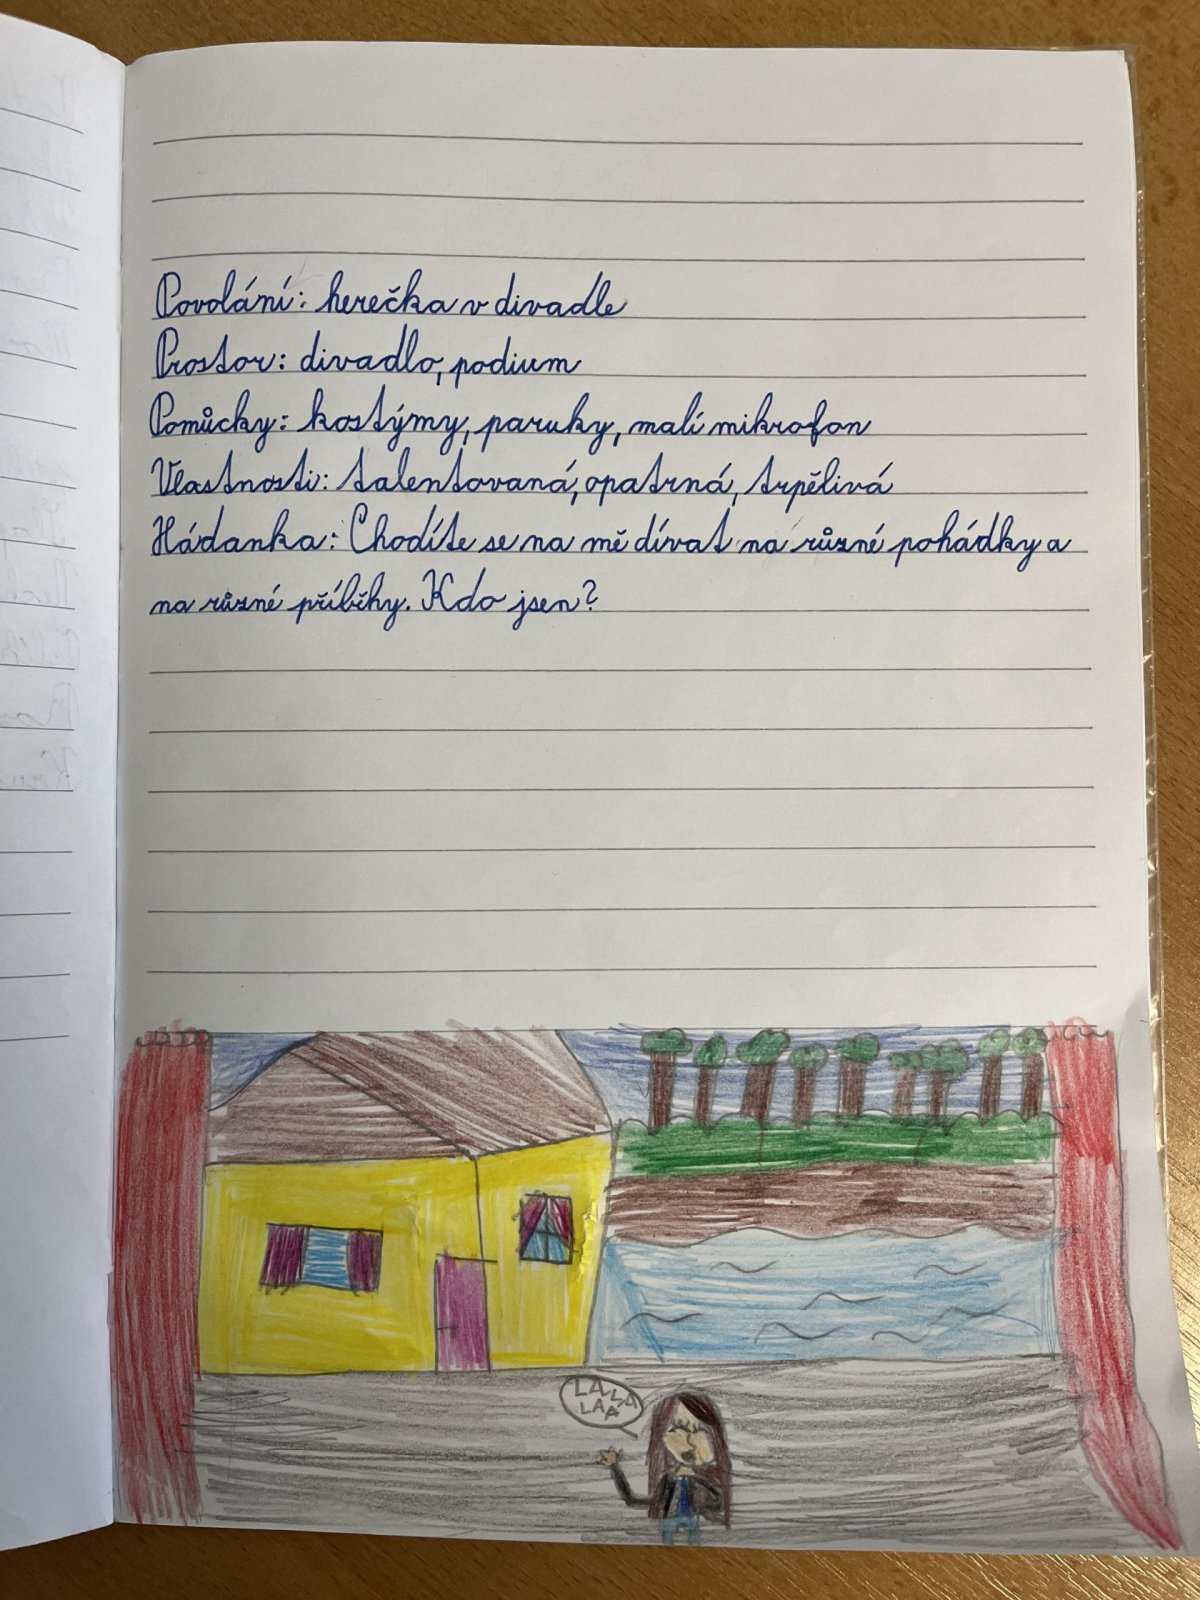 Povolání: herečka v divadle
Prostor: divadlo, podium
Pomůcky: kostýmy, paruky, malí mikrofon
Vlastnosti: talentovaná, opatrná, trpělivá
Hádanka: Chodíte se na mě dívat na různé pohádky a
na různé příběhy. Kdo jsen?
LA LA
LAÁ